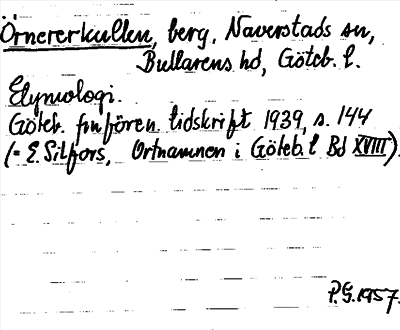 Örnererkullen, berg, Naverstads sn,
Bullarens hd, Göteb. l.
Etymologi.
Göteb. fnfören. tidskrift 1939, s. 144
(= E. Silfors, Ortnamnen i Göteb. l Bd XVIII).
P.G. 1957.